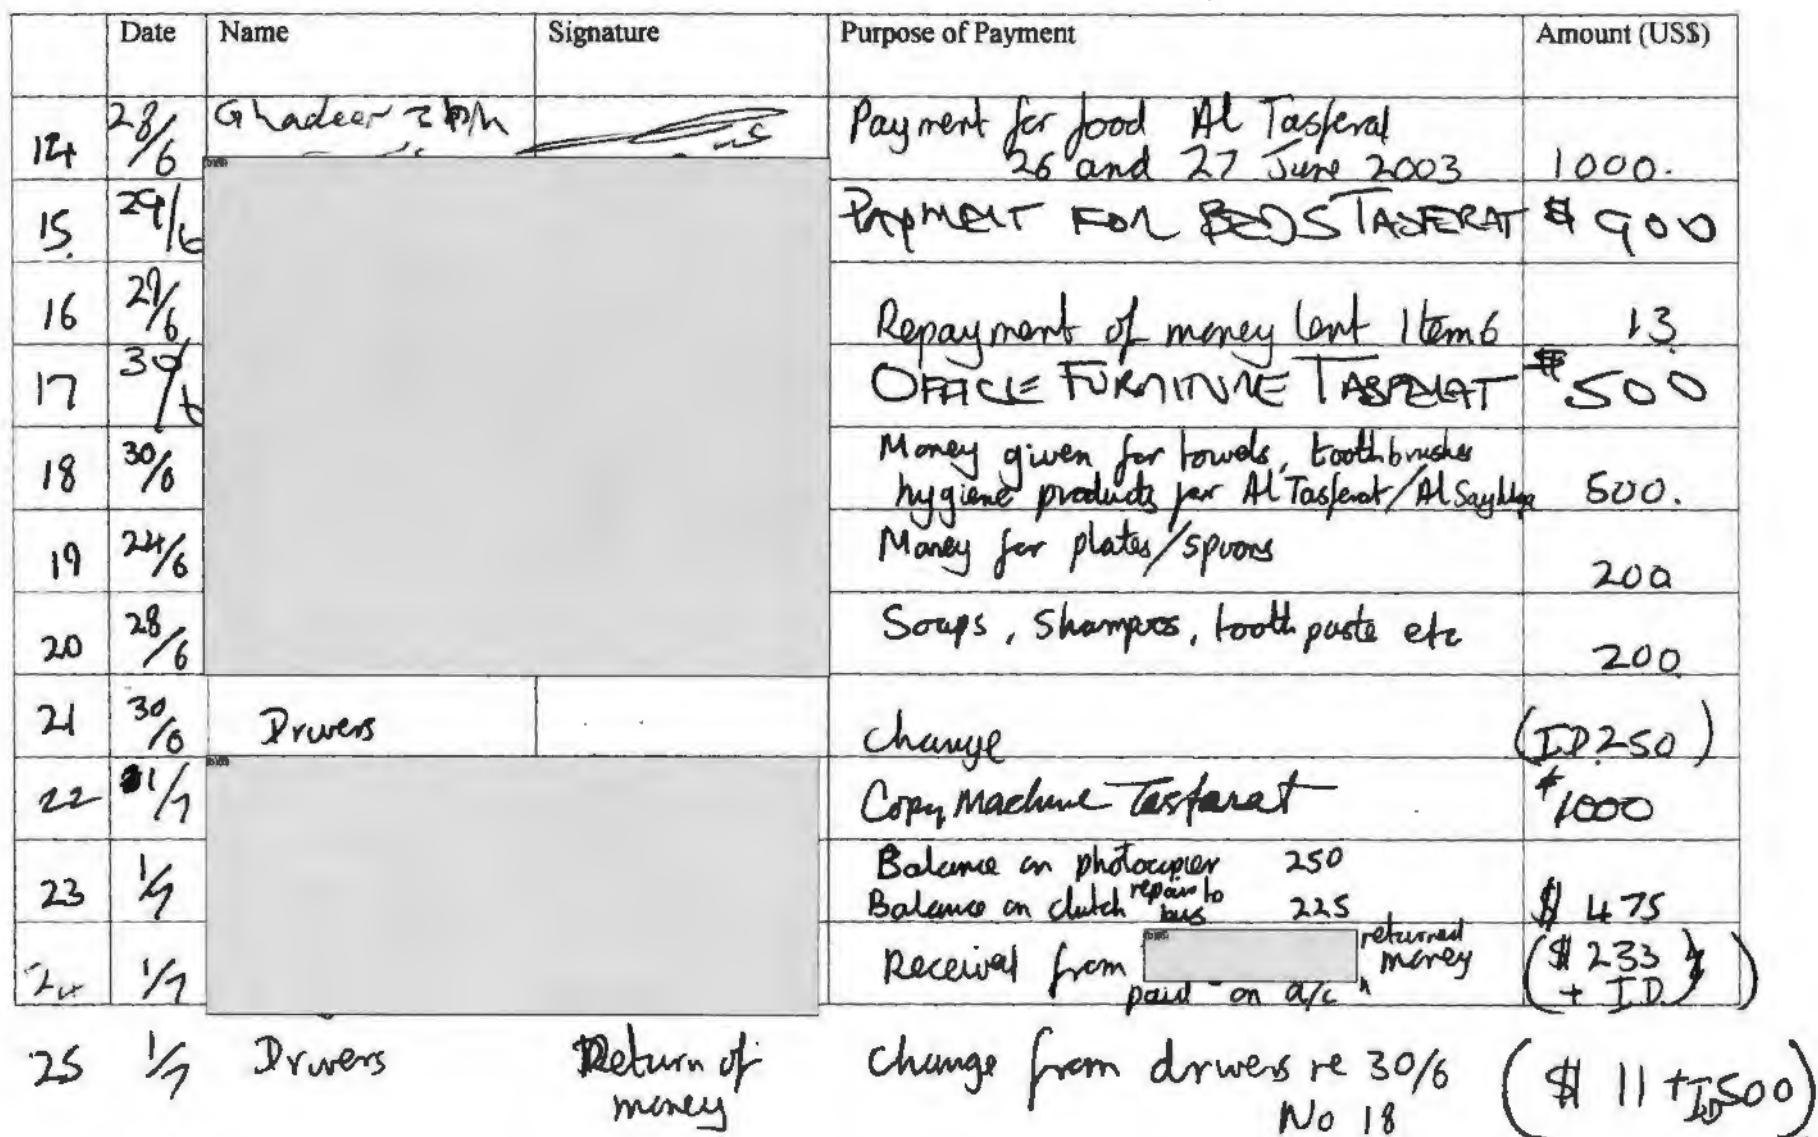 Date Name Signature Purpose of Payment Amount (US$)
14 28/6 Ghadeer Payment for food Al Tasferat
26 and 27 June 2003 1000.
15 29/6 PAYMENT FOR BEDS TASFERAT $ 900
16 29/6 Repayment of money lent Item 6 13
17 30/6 OFFICE FURNITURE TASFERAT $ 500
18 30/6 Money given for towels, toothbrushes
hygiene products for Al Tasferat/Al Sayliya 500.
19 24/6 Money for plates/spoons 200
20 28/6 Soaps, Shampoos, toothpaste etc 200
21 30/6 Drivers Change (ID 250)
22 1/7 Copy Machine Tasfarat $1000
23 1/7 Balance on photocopier 250
Balance on clutch repair to bus 225 $ 475
24 1/7 Received from returned money
paid on a/c ($ 233 + ID)
25 1/7 Drivers Return of money Change from drivers re 30/6
No 18 ($ 11 + ID 500)